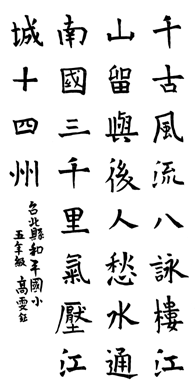 千古風流八詠樓江
山留與後人愁水通
南國三千里氣壓江
城十四州
台北縣和平國小
五年級 高雯鈺